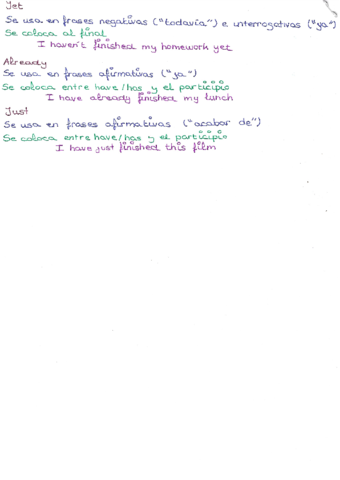 Yet
Se usa en frases negativas ("todavía") e interrogativas ("ya")
Se coloca al final
I haven't finished my homework yet
Already
Se usa en frases afirmativas ("ya")
Se coloca entre have/has y el participio
I have already finished my lunch
Just
Se usa en frases afirmativas ("acabar de")
Se coloca entre have/has y el participio
I have just finished this film